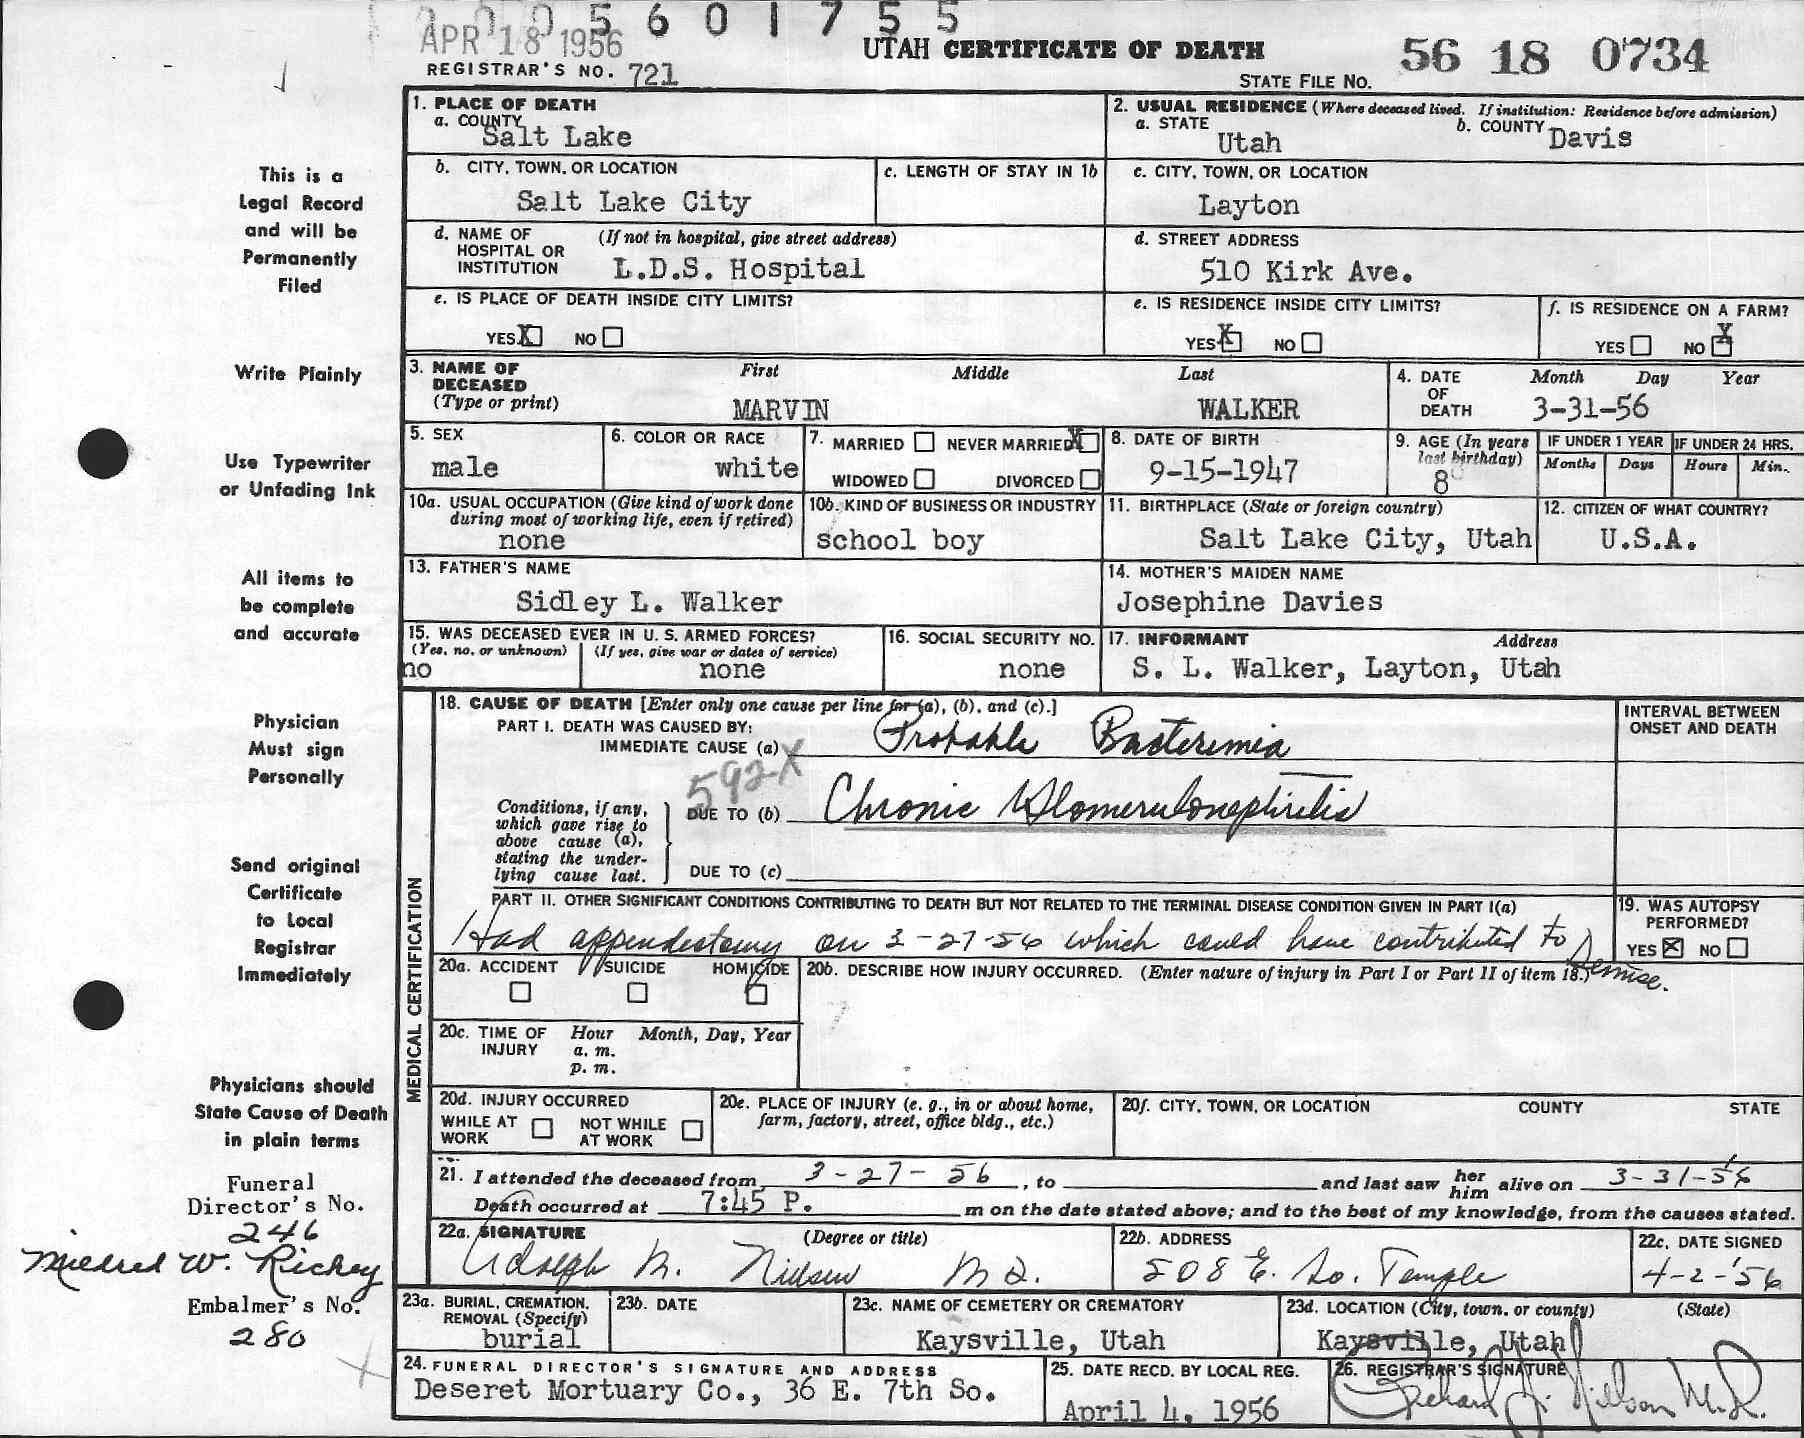 2005601755
APR 18 1956
UTAH CERTIFICATE OF DEATH
56 18 0734
REGISTRAR'S NO. 721
STATE FILE NO.
1. PLACE OF DEATH
a. COUNTY
Salt Lake
2. USUAL RESIDENCE (Where deceased lived. If institution: Residence before admission)
a. STATE
Utah
b. COUNTY
Davis
This is a
Legal Record
and will be
Permanently
Filed
b. CITY, TOWN, OR LOCATION
Salt Lake City
c. LENGTH OF STAY IN 1b
c. CITY, TOWN, OR LOCATION
Layton
d. NAME OF HOSPITAL OR INSTITUTION
(If not in hospital, give street address)
L.D.S. Hospital
d. STREET ADDRESS
510 Kirk Ave.
e. IS PLACE OF DEATH INSIDE CITY LIMITS?
YES X NO
e. IS RESIDENCE INSIDE CITY LIMITS?
YES X NO
f. IS RESIDENCE ON A FARM?
YES NO X
Write Plainly
3. NAME OF DECEASED
(Type or print)
First Middle Last
MARVIN WALKER
4. DATE OF DEATH
Month Day Year
3-31-56
Use Typewriter
or Unfading Ink
5. SEX
male
6. COLOR OR RACE
white
7. MARRIED NEVER MARRIED X
WIDOWED DIVORCED
8. DATE OF BIRTH
9-15-1947
9. AGE (In years last birthday)
8
IF UNDER 1 YEAR
Months Days
IF UNDER 24 HRS.
Hours Min.
10a. USUAL OCCUPATION (Give kind of work done during most of working life, even if retired)
none
10b. KIND OF BUSINESS OR INDUSTRY
school boy
11. BIRTHPLACE (State or foreign country)
Salt Lake City, Utah
12. CITIZEN OF WHAT COUNTRY?
U.S.A.
All items to
be complete
and accurate
13. FATHER'S NAME
Sidley L. Walker
14. MOTHER'S MAIDEN NAME
Josephine Davies
15. WAS DECEASED EVER IN U. S. ARMED FORCES?
(Yes, no, or unknown) (If yes, give war or dates of service)
no none
16. SOCIAL SECURITY NO.
none
17. INFORMANT Address
S. L. Walker, Layton, Utah
Physician
Must sign
Personally
MEDICAL CERTIFICATION
18. CAUSE OF DEATH [Enter only one cause per line for (a), (b), and (c).]
PART I. DEATH WAS CAUSED BY:
IMMEDIATE CAUSE (a) Probable Bacteremia
INTERVAL BETWEEN
ONSET AND DEATH
592X
Conditions, if any,
which gave rise to
above cause (a),
stating the under-
lying cause last.
DUE TO (b) Chronic Glomerulonephritis
DUE TO (c)
Send original
Certificate
to Local
Registrar
Immediately
PART II. OTHER SIGNIFICANT CONDITIONS CONTRIBUTING TO DEATH BUT NOT RELATED TO THE TERMINAL DISEASE CONDITION GIVEN IN PART I(a)
Had appendectomy on 3-27-56 which could have contributed to Demise.
19. WAS AUTOPSY PERFORMED?
YES X NO
20a. ACCIDENT SUICIDE HOMICIDE
20b. DESCRIBE HOW INJURY OCCURRED. (Enter nature of injury in Part I or Part II of item 18.)
20c. TIME OF INJURY
Hour Month, Day, Year
a. m.
p. m.
Physicians should
State Cause of Death
in plain terms
20d. INJURY OCCURRED
WHILE AT WORK NOT WHILE AT WORK
20e. PLACE OF INJURY (e. g., in or about home, farm, factory, street, office bldg., etc.)
20f. CITY, TOWN, OR LOCATION COUNTY STATE
21. I attended the deceased from 3-27-56, to and last saw her him alive on 3-31-56
Death occurred at 7:45 P. m on the date stated above; and to the best of my knowledge, from the causes stated.
Funeral
Director's No.
246
Mildred W. Richey
Embalmer's No.
280
22a. SIGNATURE (Degree or title)
Adolph M. Nielsen M.D.
22b. ADDRESS
508 E. So. Temple
22c. DATE SIGNED
4-2-'56
23a. BURIAL, CREMATION, REMOVAL (Specify)
burial
23b. DATE
23c. NAME OF CEMETERY OR CREMATORY
Kaysville, Utah
23d. LOCATION (City, town, or county) (State)
Kaysville, Utah
24. FUNERAL DIRECTOR'S SIGNATURE AND ADDRESS
Deseret Mortuary Co., 36 E. 7th So.
25. DATE RECD. BY LOCAL REG.
April 4, 1956
26. REGISTRAR'S SIGNATURE
Richard J. Nilson M.D.